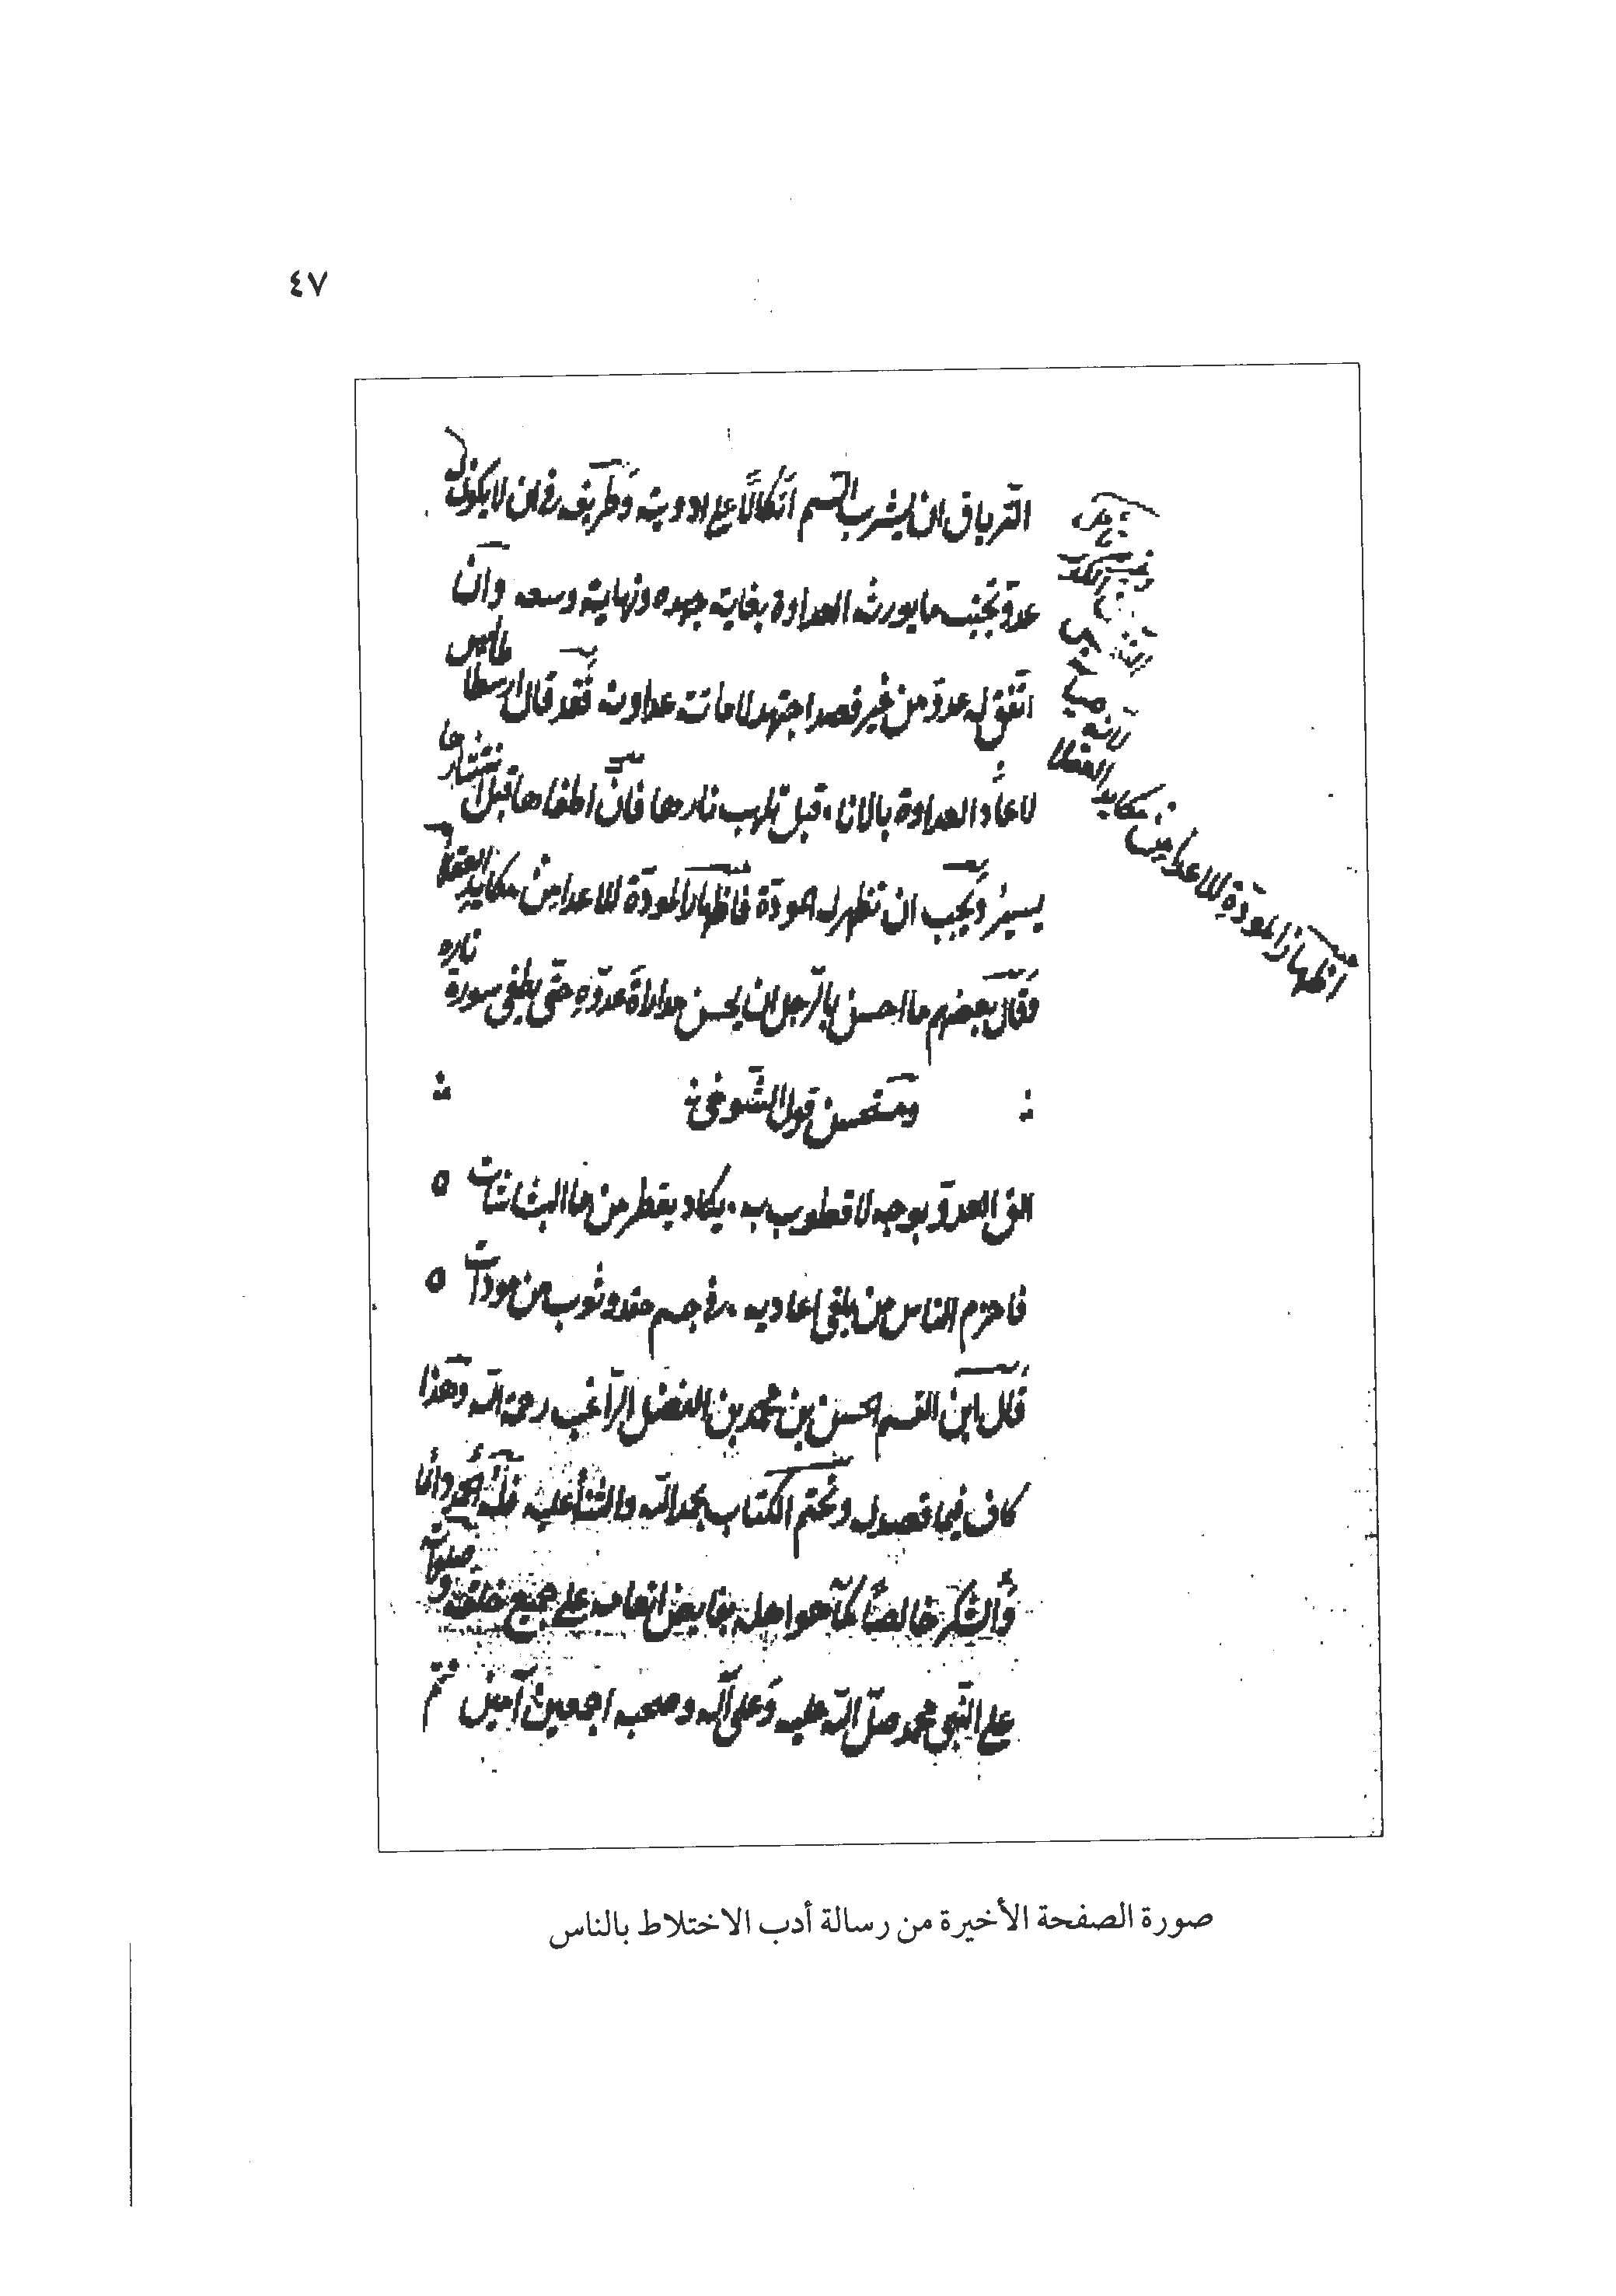 ٤٧
الترياق ان يشرب السم اتكالا على ادويته وطريقه في ان لا يكون له
عدو تجنب ما يورث العداوة بغاية جهده ونهاية وسعه وان
اتفق له عدو من غير قصد اجتهد لاماتت عداوته فقد قال ارسطاطاليس
لا عاد العداوة بالاناء قبل تلهب نارها فان اطفاءها قبل انتشارها
يسير ويجب ان تظهر له مودة فاظهار المودة للاعداء من مكايد العقلا
وقال بعضهم ما احسن بالرجل ان يحسن مداراة عدوه حتى يطفي سورة ناره
ومستحسن قول التنوخي
الق العدو بوجه لا قطوب به يكاد يقطر من ماء البشاشات
فاحزم الناس من يلقى اعاديه في جسم حقد وثوب من مودات
قال ابن القسم الحسن بن محمد بن الفضل الراغب رحمه الله وهذا
كاف فيما قصد له ونختم الكتاب بحمد الله والثنا عليه فله الحمد دائما
والشكر خالصا كما هو اهله بفايض انعامه على جميع خلقه وصلواته
على النبي محمد صلى الله عليه وعلى آله وصحبه اجمعين آمين تم
اظهار المودة للاعدا من مكايد العقلا
صورة الصفحة الأخيرة من رسالة أدب الاختلاط بالناس